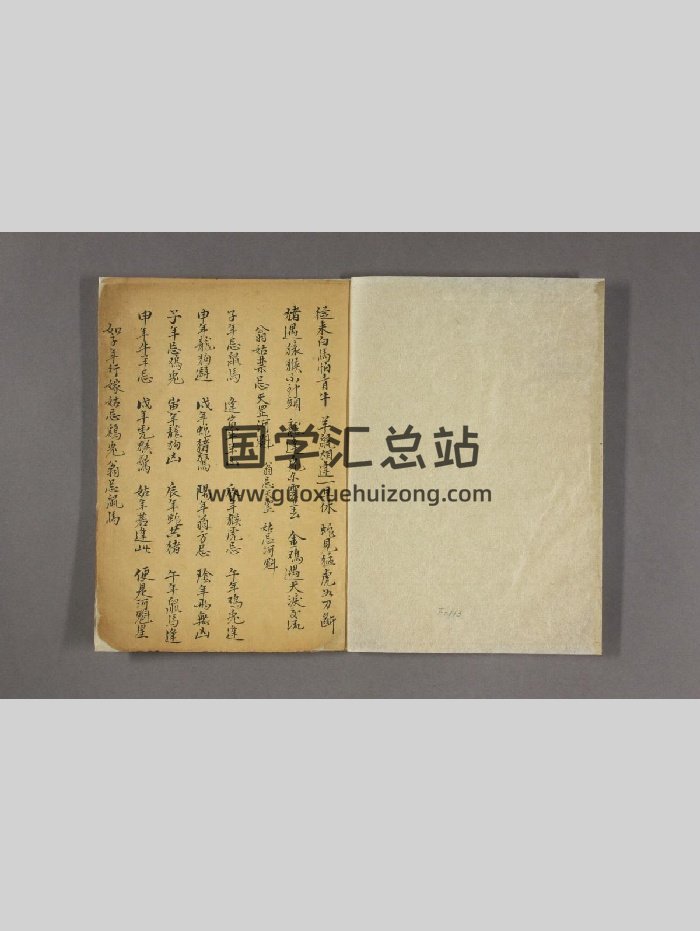 從來白馬怕青牛 羊鼠相逢一旦休 蛇見猛虎如刀斷
猪遇猿猴不到頭 金鷄遇犬淚交流
翁姑禁忌 天罡河魁 翁忌天罡 姑忌河魁
子年忌鼠馬 逢 辰年猴虎忌 午年鷄兔逢
申年龍狗避 戌年蛇猪 陽年翁方忌 陰年凶
子年忌鷄兔 寅年龍狗凶 辰年蛇共猪 午年鼠馬逢
申年牛羊忌 戌年虎猴 姑年若逢此 便是河魁星
如子年行嫁姑忌鷄兔翁忌鼠馬
国学汇总站
www.guoxuehuizong.com